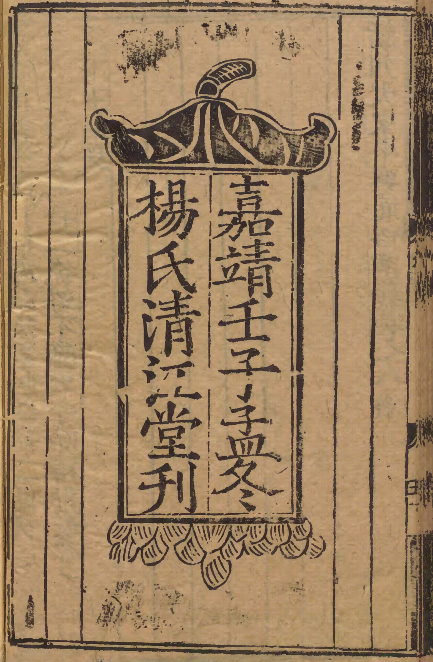 嘉靖壬子孟冬
楊氏清江堂刊